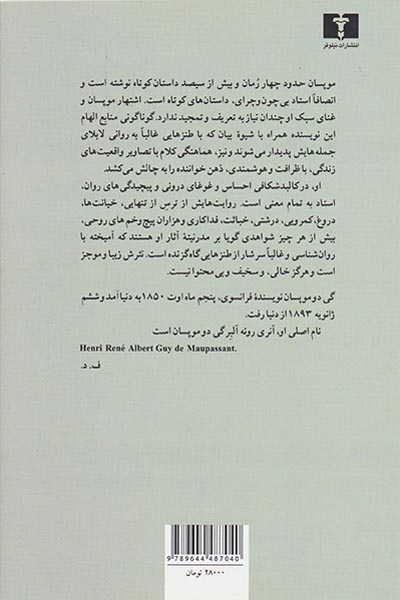 انتشارات نیلوفر
موپسان حدود چهار رُمان و بیش از سیصد داستان کوتاه نوشته است و
انصافاً استاد بی‌چون‌وچرای، داستان‌های کوتاه است. اشتهار موپسان و
غنای سبک او چندان نیاز به تعریف و تمجید ندارد. گوناگونی منابع الهام
این نویسنده همراه با شیوهٔ بیان که با طنزهایی غالباً به روانی لابلای
جمله‌هایش پدیدار می‌شوند و نیز، هماهنگی کلام با تصاویر واقعیت‌های
زندگی، با ظرافت و هوشمندی، ذهن خواننده را به چالش می‌کشد.
او، در کالبدشکافی احساس و غوغای درونی و پیچیدگی‌های روان،
استاد به تمام معنی است. روایت‌هایش از ترس از تنهایی، خیانت‌ها،
دروغ، کمرویی، درشتی، خباثت، فداکاری و هزاران پیچ وخم های روحی،
بیش از هر چیز شواهدی گویا بر مدرنیتهٔ آثار او هستند که آمیخته با
روان‌شناسی و غالباً سرشار از طنزهایی گاه گزنده است. نثرش زیبا و موجز
است و هرگز خالی، و سخیف و بی محتوا نیست.
گی دو موپسان نویسندهٔ فرانسوی، پنجم ماه اوت ۱۸۵۰ به دنیا آمد و ششم
ژانویه ۱۸۹۳ از دنیا رفت.
نام اصلی او، آنری رونه آلبر گی دو موپسان است
Henri René Albert Guy de Maupassant.
ف. د.
9 789644 487040
۲۸۰۰۰ تومان